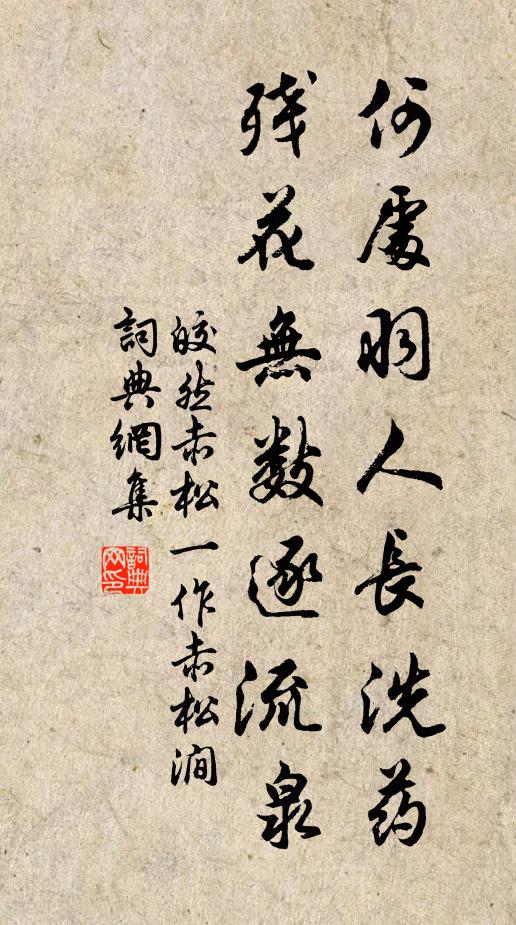 何處羽人長洗药
残花無數逐流泉
皎然赤松一作赤松澗
詞典網集
詞典网印